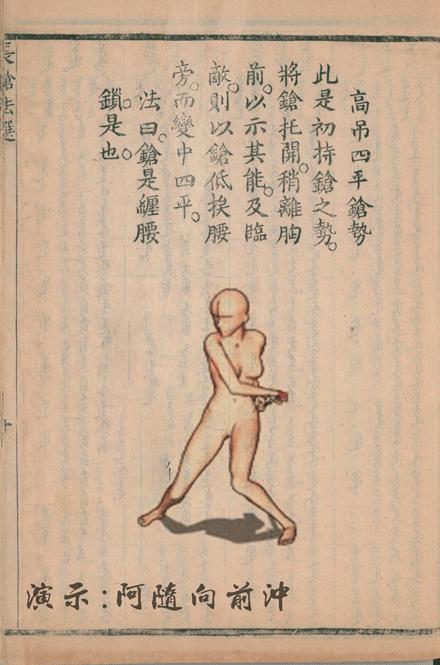 高吊四平鎗勢
此是初持鎗之勢。
將鎗托開。稍離胸
前。以示其能。及臨
敵。則以鎗低挨腰
旁。而變中四平。
法曰。鎗是纏腰
鎖是也。
長鎗法選
十
演示:阿隨向前沖